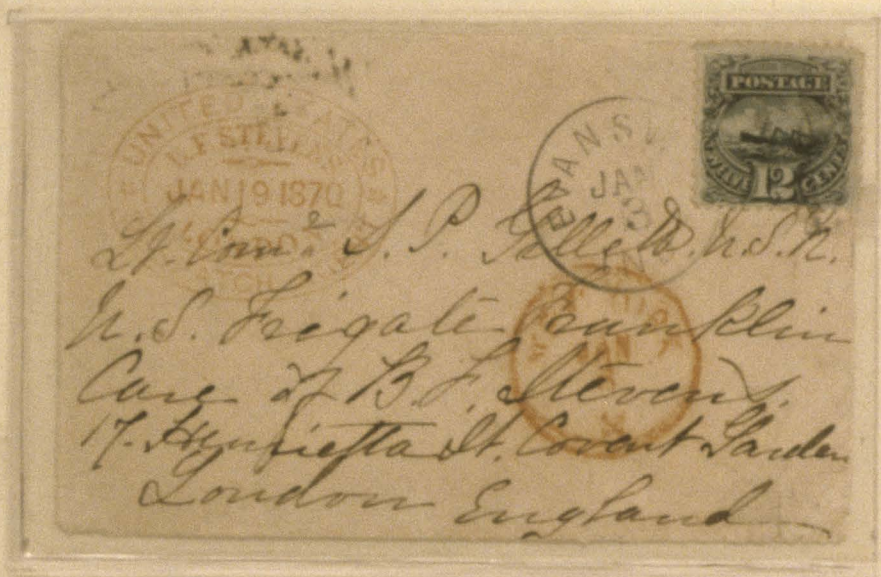 UNITED STATES
B. F. STEVENS
JAN 19 1870
LONDON
POSTAGE
TWELVE 12 CENTS
EVANSV
JAN
Lt. Com.r S. P. Gillett. U.S.N.
U.S. Frigate Franklin
JAN
Care of B. F. Stevens.
17. Henrietta St. Covent Garden
London England